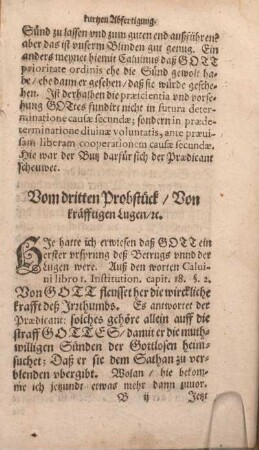 kurtzen Abfertigung.
Sünd zu lassen vnd zum guten end außführen?
aber das ist vnserm Blinden gut genug. Ein
anders meynet hiemit Caluinus daß GOTT
prioritate ordinis ehe die Sünd gewolt ha-
be / ehe dann er gesehen / daß sie würde gesche-
hen. Ist derhalben die præscientia vnd vorse-
hung GOttes fundirt nicht in futura deter-
minatione causæ secundæ; sondern in præde-
terminatione diuinæ voluntatis, ante præui-
sam liberam cooperationem causæ secundæ.
Hie war der Butz darfür sich der Prædicant
scheuwet.
Vom dritten Probstück / Von
kräfftigen Lugen /ꝛc.
HIe hatte ich erwiesen daß GOTT ein
erster vrsprung deß Betrugs vnnd der
Lugen were. Auß den worten Calui-
ni libro 1. Institution. capit. 18. §. 2.
Von GOTT fleusset her die wirckliche
krafft deß Irrthumbs. Es antwortet der
Prædicant: solches gehöre allein auff die
straff GOTTES / damit er die muth-
willigen Sünden der Gottlosen heim-
suchet: Daß er sie dem Sathan zu ver-
blenden vbergibt. Wolan / hie bekom-
me ich jetzundt etwas mehr dann zuuor.
B ij Jetzt